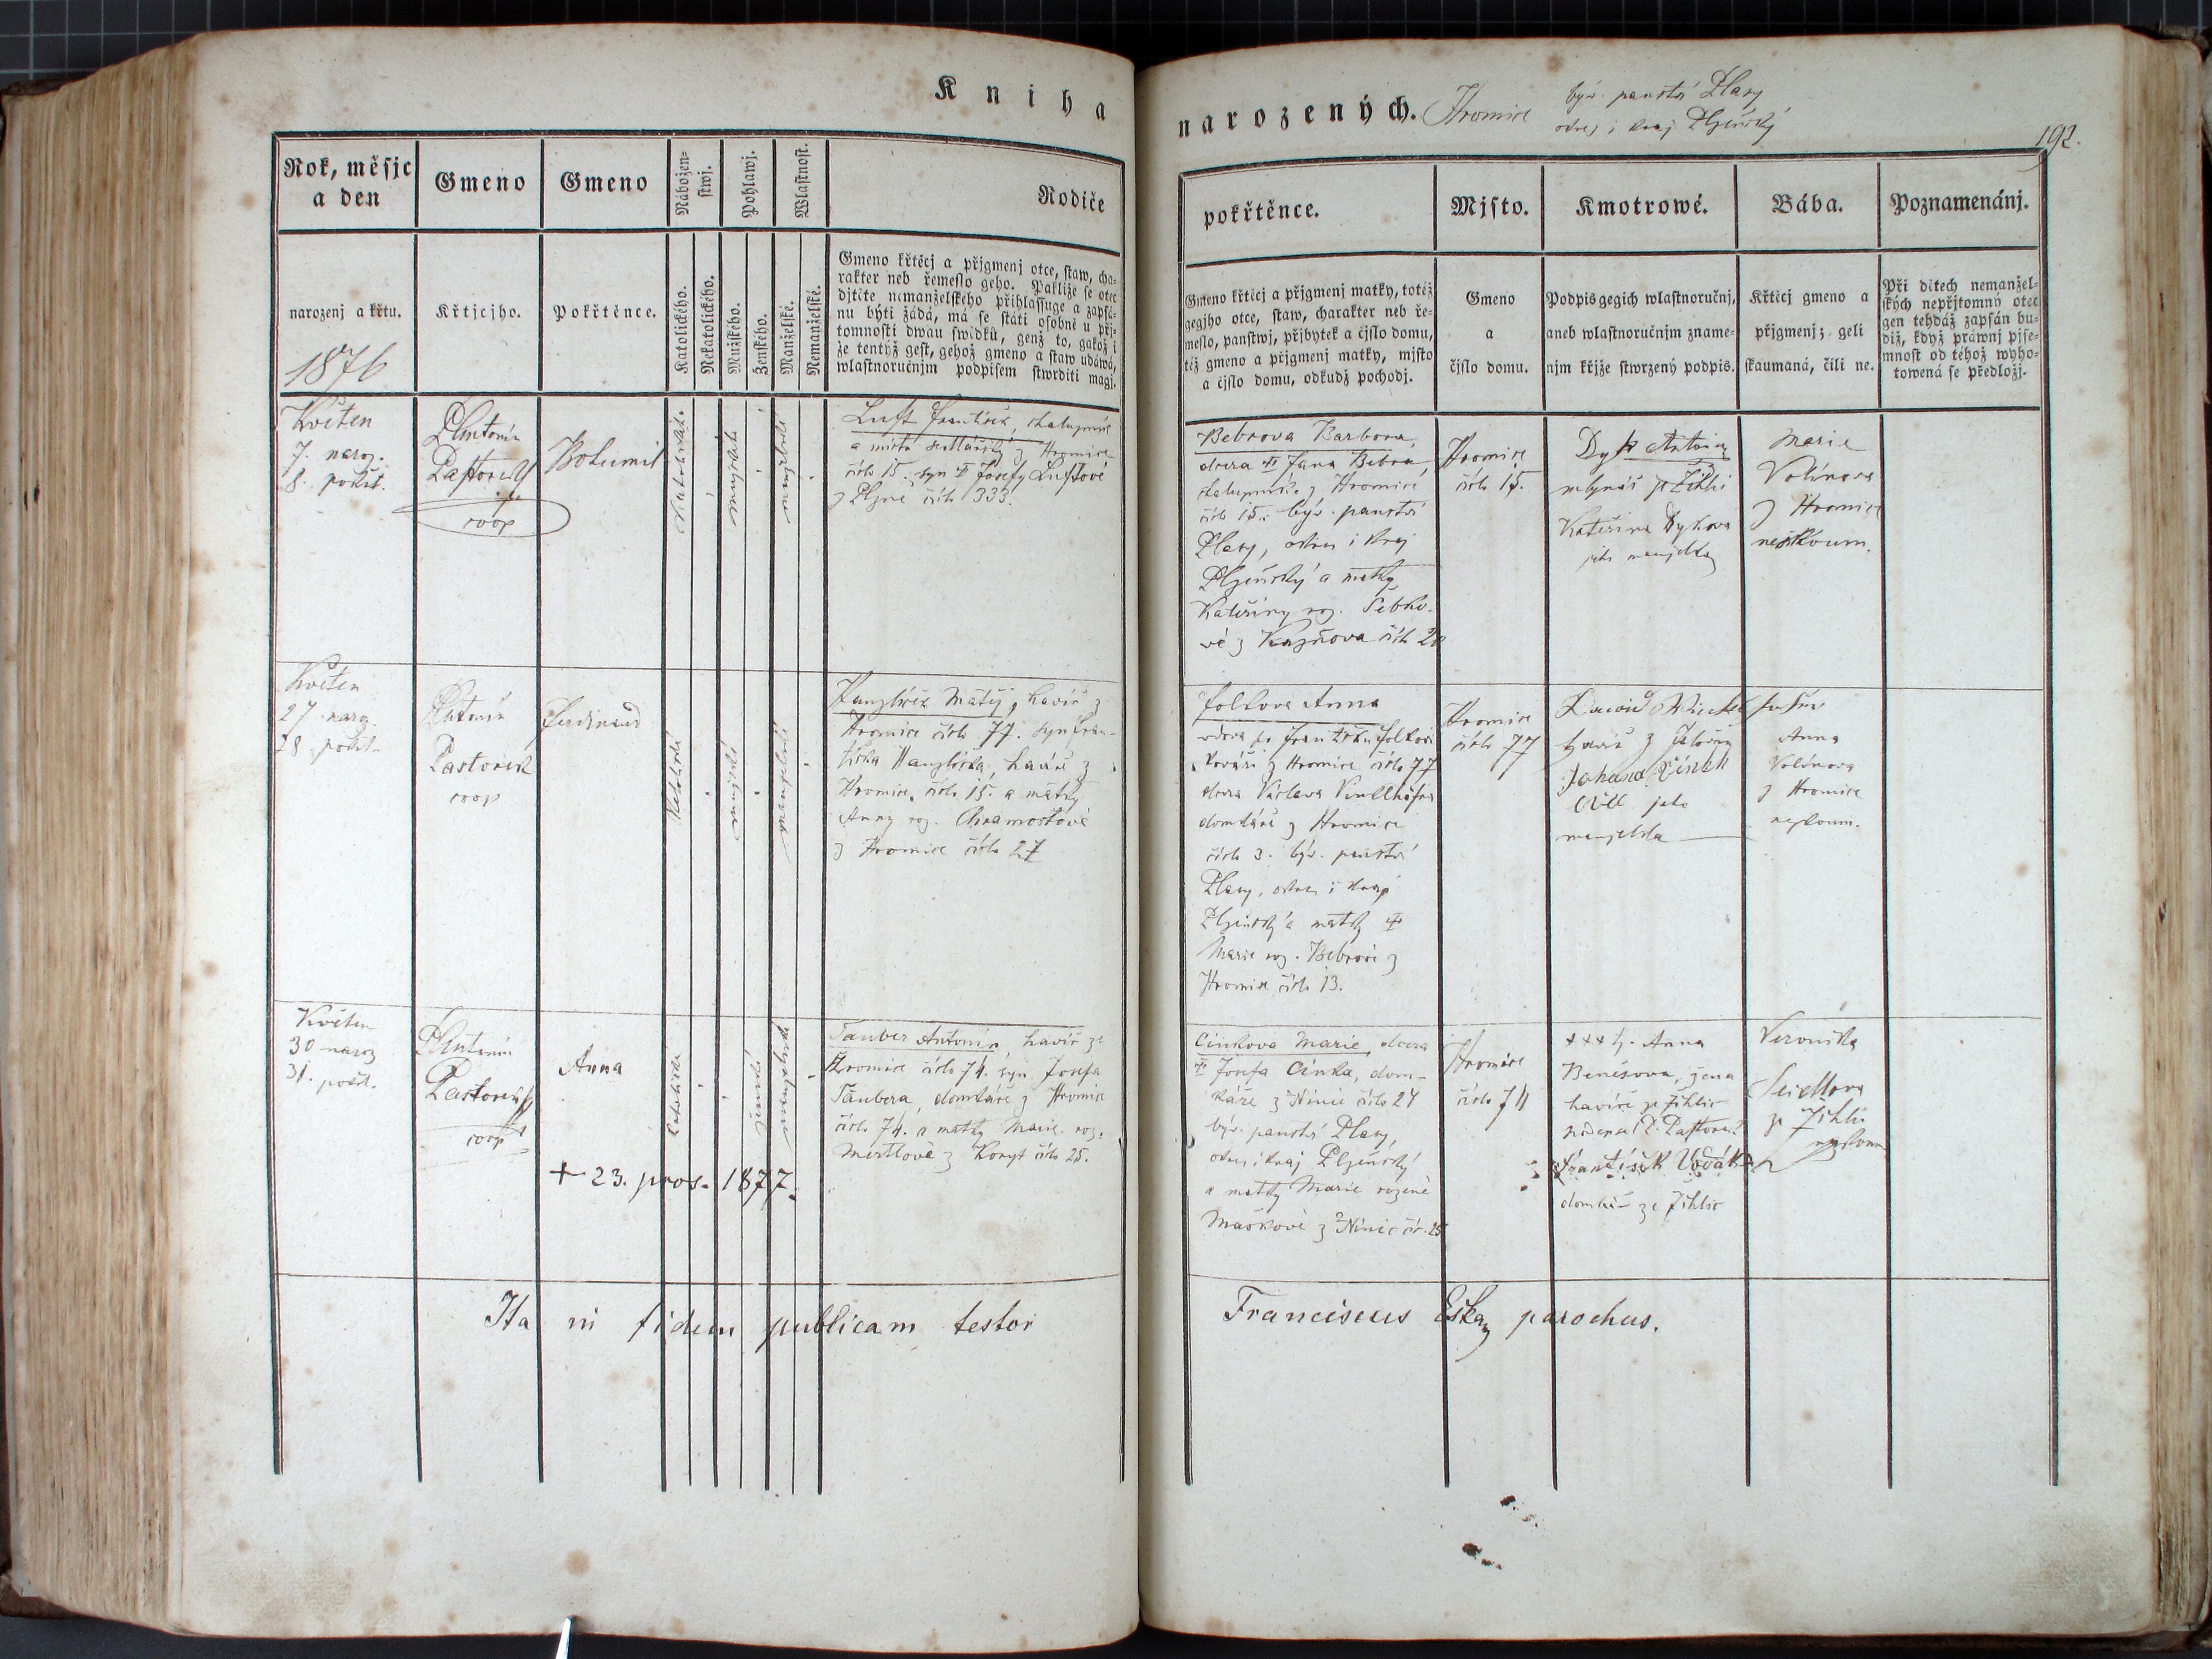 Kniha
narozených. Hromice býv. panství Plasy
okres i kraj Plzeňský
192.
Rok, měsjc
a den
Gmeno
Gmeno
Nábožen=
stwj.
Pohlawj.
Wlastnost.
Rodiče
narozenj a křtu.
1876
Křtjcjho.
Pokřtěnce.
Katolického.
Nekatolického.
Mužského.
Ženského.
Manželské.
Nemanželské.
Gmeno křtěcj a přjgmenj otce, staw, cha-
rakter neb řemeslo geho. Pakliže se otec
djtěte nemanželského přihlassuge a zapsá-
nu býti žádá, má se státi osobně u přj-
tomnosti dwau swědků, genž to, gakož i
že tentýž gest, gehož gmeno a staw udáwá,
wlastnoručnjm podpisem stwrditi magj.
pokřtěnce.
Mjsto.
Kmotrowé.
Bába.
Poznamenánj.
Gmeno křtěcj a přjgmenj matky, totéž
gegjho otce, staw, charakter neb ře-
meslo, panstwj, přjbytek a čjslo domu,
též gmeno a přjgmenj matky, mjsto
a čjslo domu, odkudž pocházj.
Gmeno
a
čjslo domu.
Podpis gegich wlastnoručnj,
aneb wlastnoručnjm zname-
njm křjže stwrzený podpis.
Křtěcj gmeno a
přjgmenj; geli
skaumaná, čili ne.
Při djtech nemanžel-
ských nepřjtomný otec
gen tehdáž zapsán bu-
diž, když práwnj pjse-
mnost od téhož wyho-
towená se předložj.
Květen
7. naroz.
8. pokřt.
Antonín
Pastorek
coop
Bohumil
katolické
mužské
manželské
Luft František, chalupník
a mistr sedlářský z Hromice
číslo 15. syn † Josefy Luftové
z Plzně číslo 333.
Bebrova Barbora,
dcera † Jana Bebra,
chalupníka z Hromice
číslo 15. býv. panství
Plasy, okres i kraj
Plzeňský a matky
Kateřiny roz. Šebko-
vé z Kaznova číslo 20
Hromice
číslo 15.
Dyk Antonín
mlynář ze Žihli
Kateřina Dykova
jeho manželka
Marie
Volínova
z Hromice
neskoum.
Květen
27 naroz.
28. pokřt.
Antonín
Pastorek
coop
Ferdinand
katolické
mužské
manželské
Hanzlíček Matěj, havíř z
Hromice číslo 77. syn Fran-
tiška Hanzlíčka, havíře z
Hromice, číslo 15. a matky
Anny roz. Chramostové
z Hromice číslo 27
Folkova Anna
vdova po Františku Folkovi
kováři z Hromice číslo 77
dcera Václava
domkáře z Hromice
číslo 3. býv. panství
Plasy, okres i kraj
Plzeňský a matky †
Marie roz. Bebrové z
Hromice číslo 13.
Hromice
číslo 77
havíř z
Johana
jeho
manželka
Anna
Volínova
z Hromice
neskoum.
Květen
30 naroz
31. pokřt.
Antonín
Pastorek
coop
Anna
+ 23. pros. 1877.
katolické
ženské
manželské
Tauber Antonín havíř ze
Hromice číslo 74. syn Josefa
Taubera, domkáře z Hromice
číslo 74. a matky Marie roz.
Mertlové z Koryt číslo 25.
Cinkova Marie, dcera
† Josefa Cinka, dom-
káře z Nínic číslo 24
býv. panství Plasy,
okres i kraj Plzeňský
a matky Marie rozené
Maškové z Nínic čís. 25
Hromice
číslo 74
+++ Anna
Benešova, žena
havíře ze Žihlic
podepsal P. Pastorek
František Vodák
domkář ze Žihlic
Veronika
Seidlova
ze Žihlic
neskoum
Ita in fidem publicam testor
Franciscus Eiska parochus.